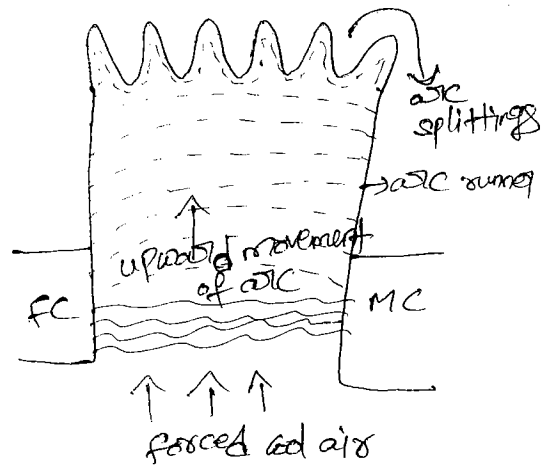 arc
splittings
arc runner
upward movement
of arc
FC
MC
forced cod air